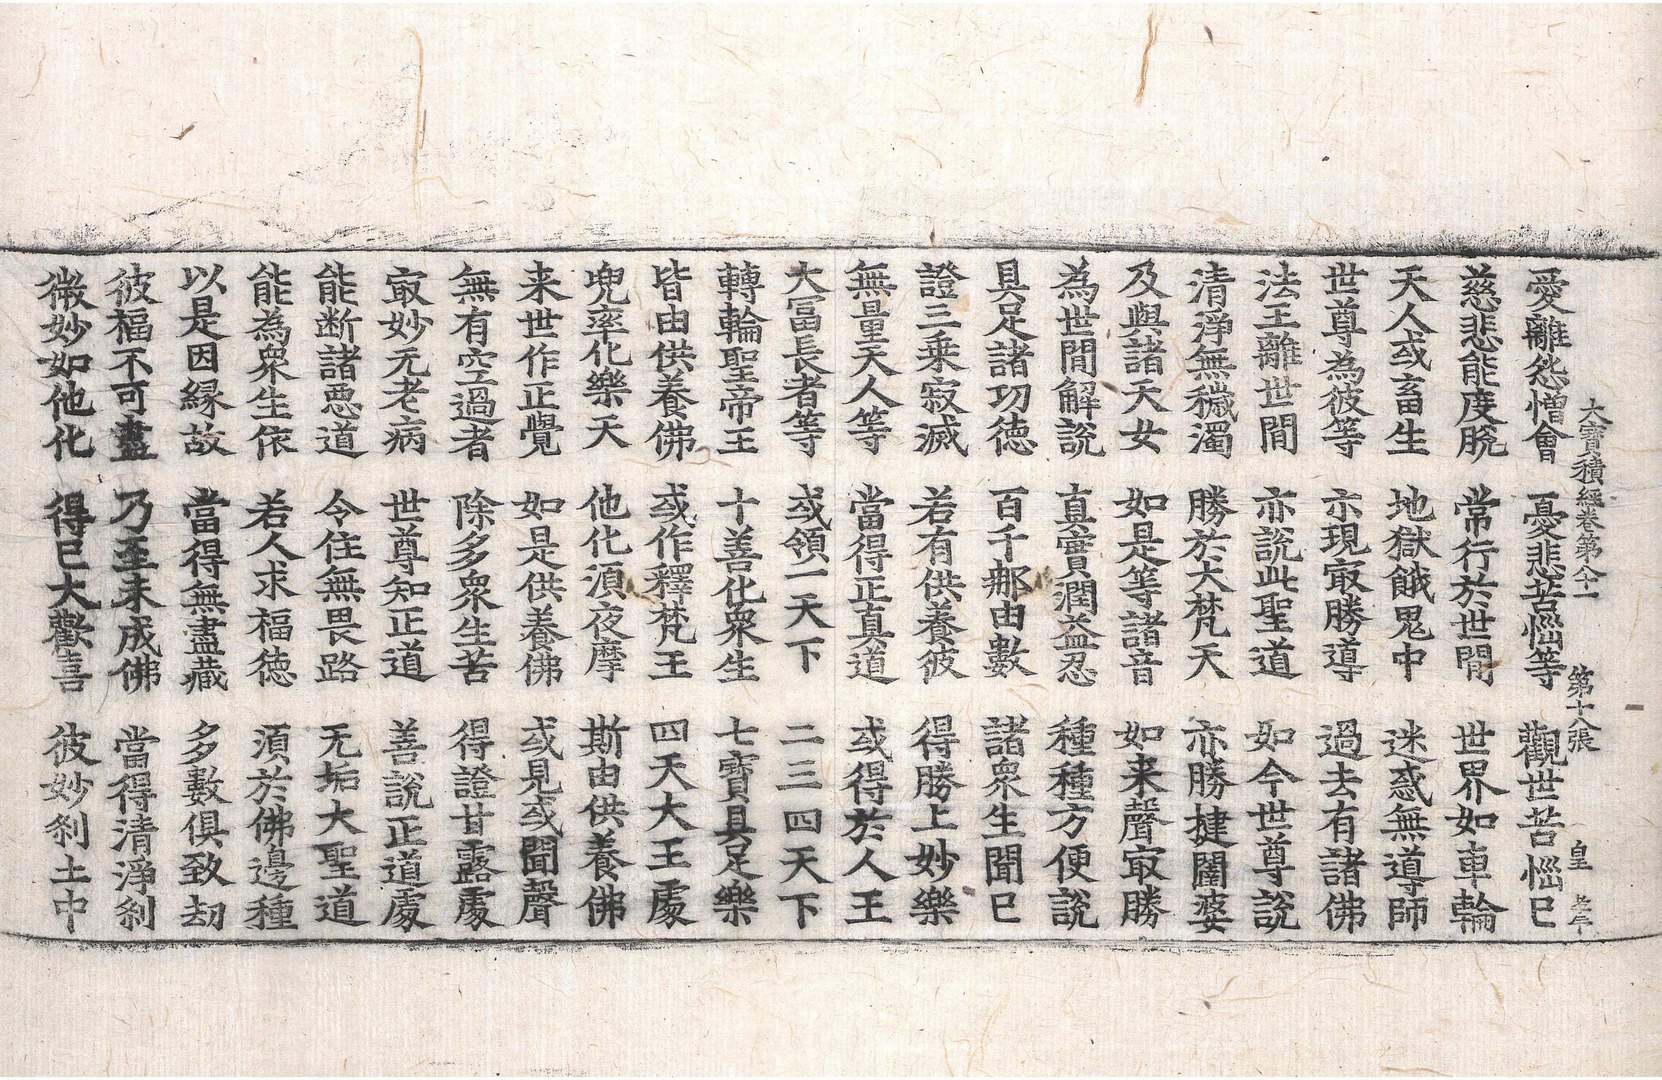 大寶積經卷第八十一　第十八張　皇
愛離怨憎會　憂悲苦惱等　觀世苦惱已
慈悲能度脫　常行於世間　世界如車輪
天人或畜生　地獄餓鬼中　迷惑無導師
世尊為彼等　示現㝡勝導　過去有諸佛
法王離世間　亦說此聖道　如今世尊說
清淨無穢濁　勝於大梵天　亦勝揵闥婆
及與諸天女　如是等諸音　如来聲㝡勝
為世間解說　真實潤益忍　種種方便說
具足諸功德　百千那由數　諸眾生聞已
證三乗寂滅　若有供養彼　得勝上妙樂
無量天人等　當得正真道　或得於人王
大冨長者等　或領一天下　二三四天下
轉輪聖帝王　十善化眾生　七寶具足樂
皆由供養佛　或作釋梵王　四天大王處
兜率化樂天　他化湏夜摩　斯由供養佛
来世作正覺　如是供養佛　或見或聞聲
無有空過者　除多眾生苦　得證甘露處
㝡妙无老病　世尊知正道　善說正道處
能断諸惡道　令住無畏路　无垢大聖道
能為眾生依　若人求福德　湏於佛邊種
以是因緣故　當得無盡藏　多數俱致劫
彼福不可盡　乃至未成佛　當得清淨剎
微妙如他化　得已大歡喜　彼妙剎土中